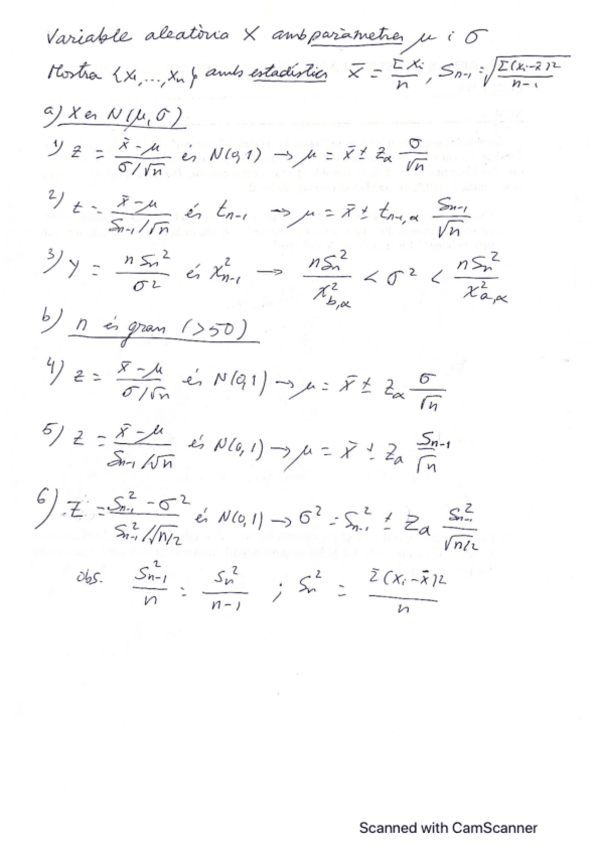 Variable aleatòria X amb paràmetres μ i σ
Mostra {x₁,...,xₙ} amb estadístics x̄ = Σxᵢ/n, Sₙ₋₁ = √(Σ(xᵢ-x̄)²/(n-1))
a) X és N(μ,σ)
1) z = (x̄-μ)/(σ/√n) és N(0,1) → μ = x̄ ± z_α σ/√n
2) t = (x̄-μ)/(Sₙ₋₁/√n) és tₙ₋₁ → μ = x̄ ± t_{n-1,α} Sₙ₋₁/√n
3) y = nSₙ²/σ² és χ²ₙ₋₁ → nSₙ²/χ²_{b,α} < σ² < nSₙ²/χ²_{a,α}
b) n és gran (>50)
4) z = (x̄-μ)/(σ/√n) és N(0,1) → μ = x̄ ± z_α σ/√n
5) z = (x̄-μ)/(Sₙ₋₁/√n) és N(0,1) → μ = x̄ ± z_α Sₙ₋₁/√n
6) z = (S²ₙ₋₁-σ²)/(S²ₙ₋₁/√(n/2)) és N(0,1) → σ² = S²ₙ₋₁ ± z_α S²ₙ₋₁/√(n/2)
obs. S²ₙ₋₁/n = Sₙ²/(n-1) ; Sₙ² = Σ(xᵢ-x̄)²/n
Scanned with CamScanner